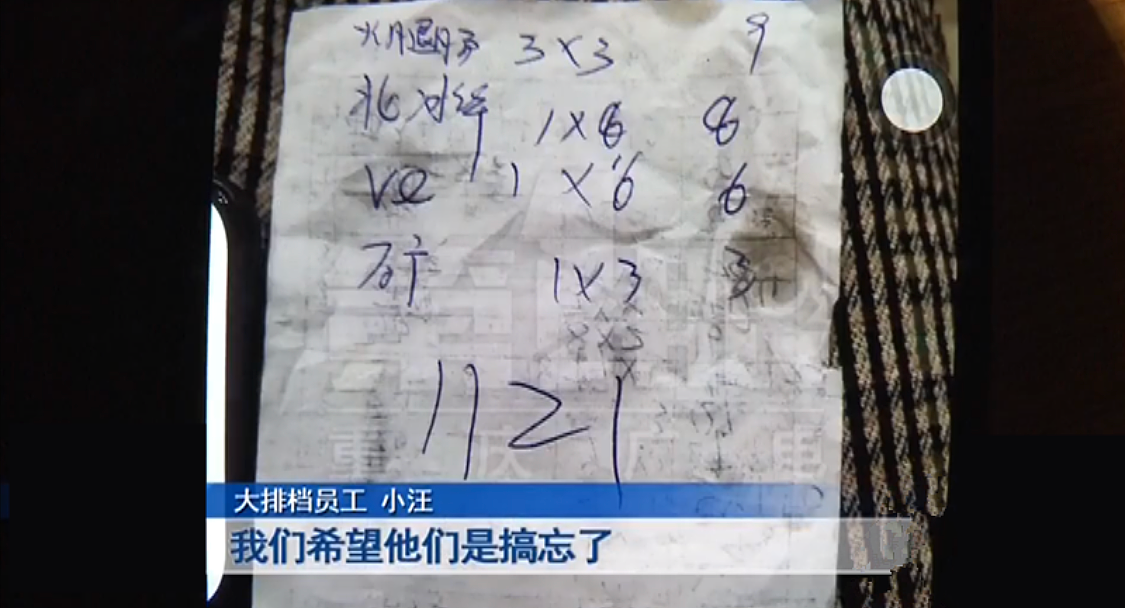 火腿肠 3×3 9
北冰洋 1×6 8
VQ 1 ×6 6
矿 1×3 3
1121
重庆广电
大排档员工 小汪
我们希望他们是搞忘了